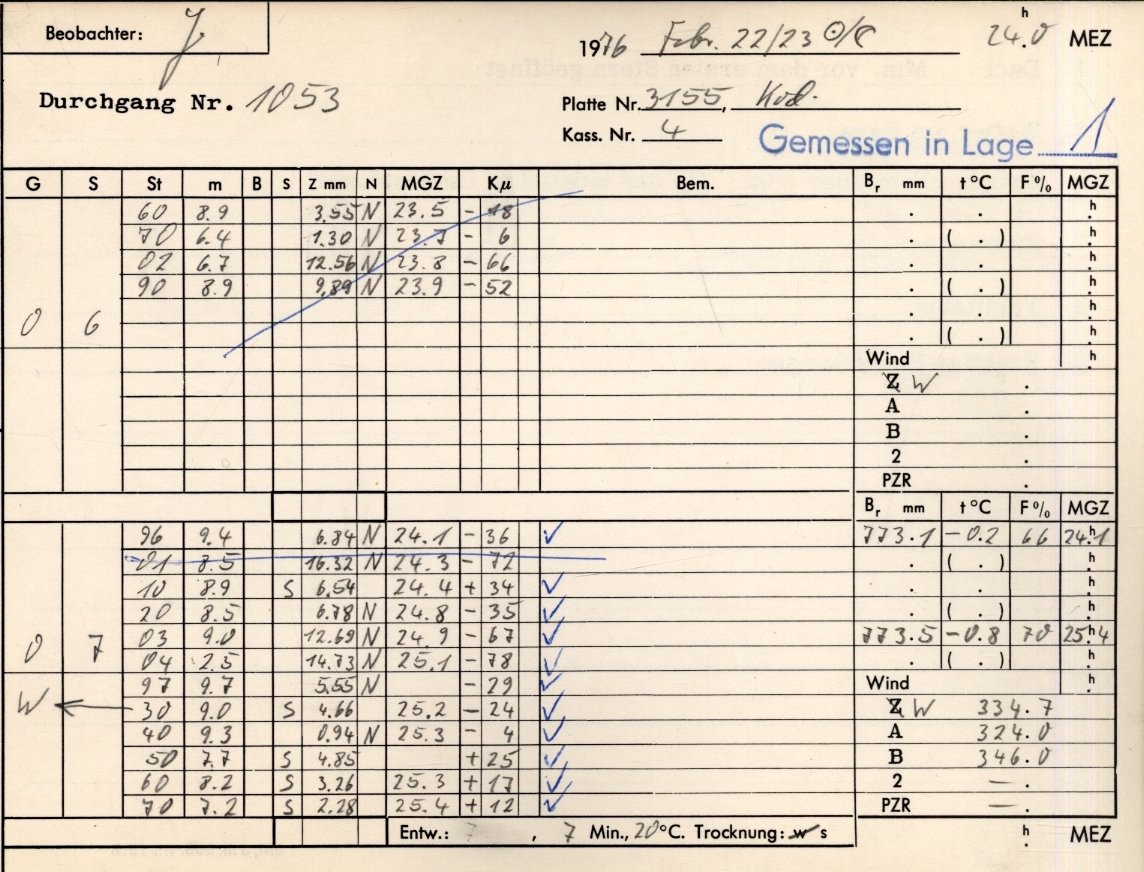 Beobachter: J
1976 Febr. 22/23 ⊙/☾ 24.0 h MEZ
Durchgang Nr. 1053
Platte Nr. 3155, Kod.
Kass. Nr. 4
Gemessen in Lage 1
G S St m B S Z mm N MGZ Kµ Bem. Br mm t °C F % MGZ
60 8.9 3.55 N 23.5 - 18 . . h
70 6.4 1.30 N 23.7 - 6 . ( . )
02 6.7 12.56 N 23.8 - 66 . . h
90 8.9 9.89 N 23.9 - 52 . ( . )
0 6 . . h
. ( . ) h
Wind h
Z W .
A .
B .
2 .
PZR .
Br mm t °C F % MGZ
96 9.4 6.84 N 24.1 - 36 ✓ 773.1 -0.2 66 24.1 h
01 8.5 16.32 N 24.3 - 72 . ( . )
10 8.9 S 6.54 24.4 + 34 ✓ . . h
20 8.5 6.78 N 24.8 - 35 ✓ . ( . )
03 9.0 12.69 N 24.9 - 67 ✓ 773.5 -0.8 70 25.4 h
0 7 04 2.5 14.73 N 25.1 - 78 ✓ . ( . ) h
97 9.7 5.55 N - 29 ✓ Wind h
W ← 30 9.0 S 4.66 25.2 - 24 ✓ Z W 334.7
40 9.3 0.94 N 25.3 - 4 ✓ A 324.0
50 7.7 S 4.85 + 25 ✓ B 346.0
60 8.2 S 3.26 25.3 + 17 ✓ 2 — .
70 7.2 S 2.28 25.4 + 12 ✓ PZR — .
Entw.: 7 , 7 Min., 20 °C. Trocknung: w s h MEZ